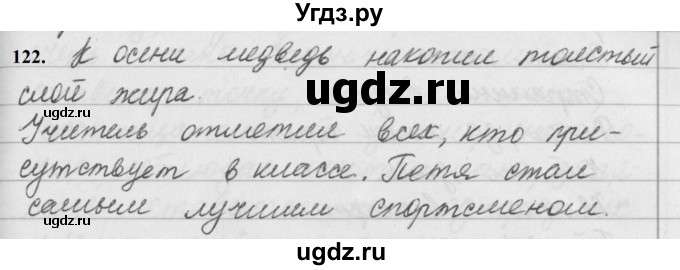 Угдз.ру
122. К осени медведь накопил толстый
слой жира.
ugdz.ru
Учитель отметил всех, кто при-
сутствует в классе. Петя стал
самым лучшим спортсменом.
ugdz.ru
ugdz.ru